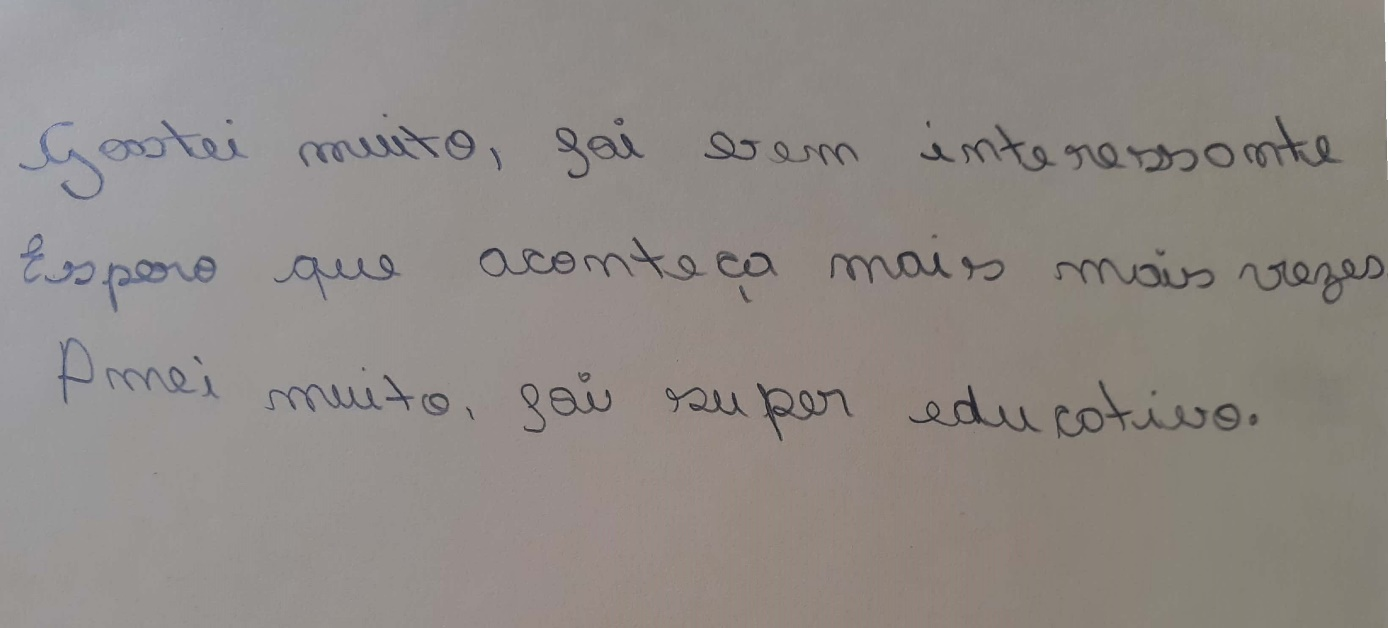 Gostei muito, foi bem interessante
Espero que aconteça mais mais vezes
Amei muito, foi super educativo.